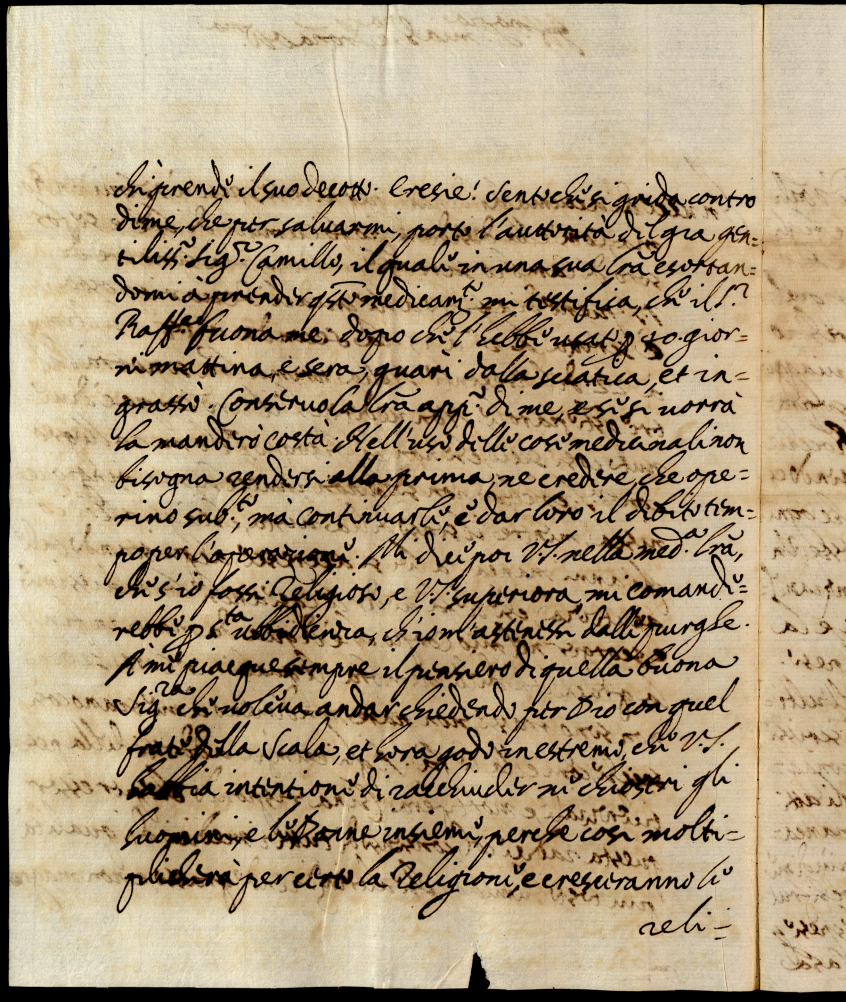 chi prende il suo decotto. Eresie! Sento che si grida contro
di me, che per salvarmi, porto l'auttorità del già gen=
tiliss.º Sig.r Camillo, il quale in una sua lrã esortan=
domi à prender qsto medicam.to mi testifica, che il S.r
Raff.e buona me: dopo che l'hebbe usato p 40. gior=
ni mattina, e sera, guarì dalla sciatica, et in=
grassò. Conservo la lrã app.º di me, e se si vorrà
la manderò costà. Nell'uso delle cose medicinali non
bisogna rendersi alla prima, ne credere, che ope=
rino sub.to, mà continuarle, e dar loro il debito tem=
po per l'operazione. Mi dice poi V.S. nella med.a lrã,
che s'io fossi Religioso, e V.S. superiora, mi comande=
rebbe p s.ta ubbidienza, ch'io m'astenessi dalle purghe.
A me piacque sempre il pensiero di quella buona
Sig.ra che voleva andar chiedendo per Dio con quel
frate della Scala, et hora godo in estremo, che V.S.
habbia intentione di racchiuder ne chiostri gli
huomini, e le Donne insieme, perche così molti=
plicherà per certo la Religione, e cresceranno le
reli=